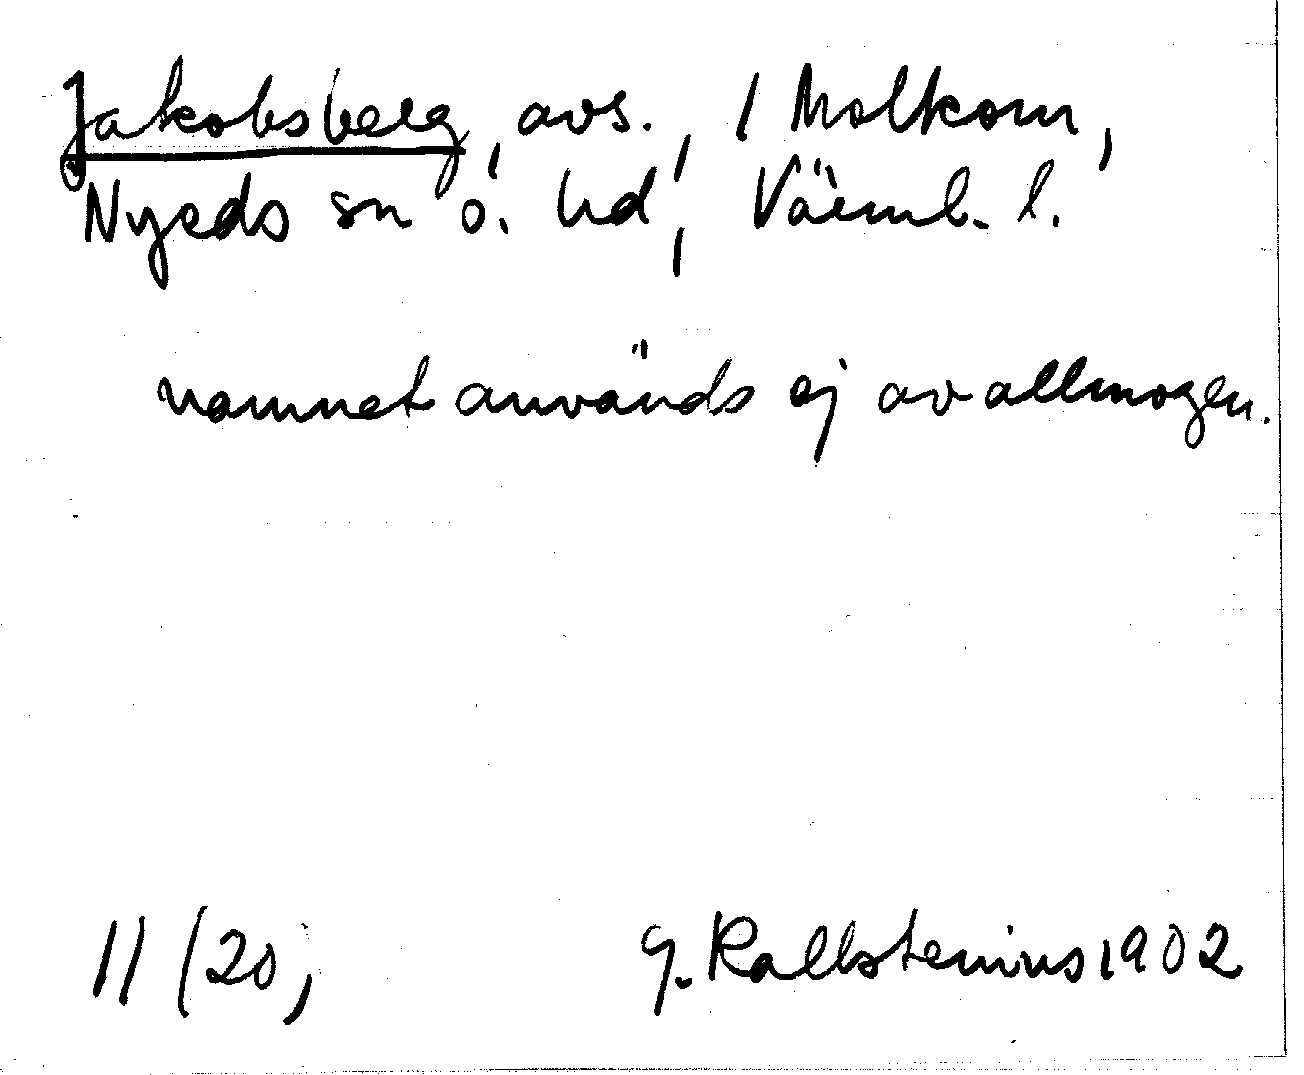 Jakobsberg, avs., 1 Molkom,
Nyeds sn o. hd, Värml. l.
namnet används ej av allmogen.
11/20, G. Kallstenius 1902